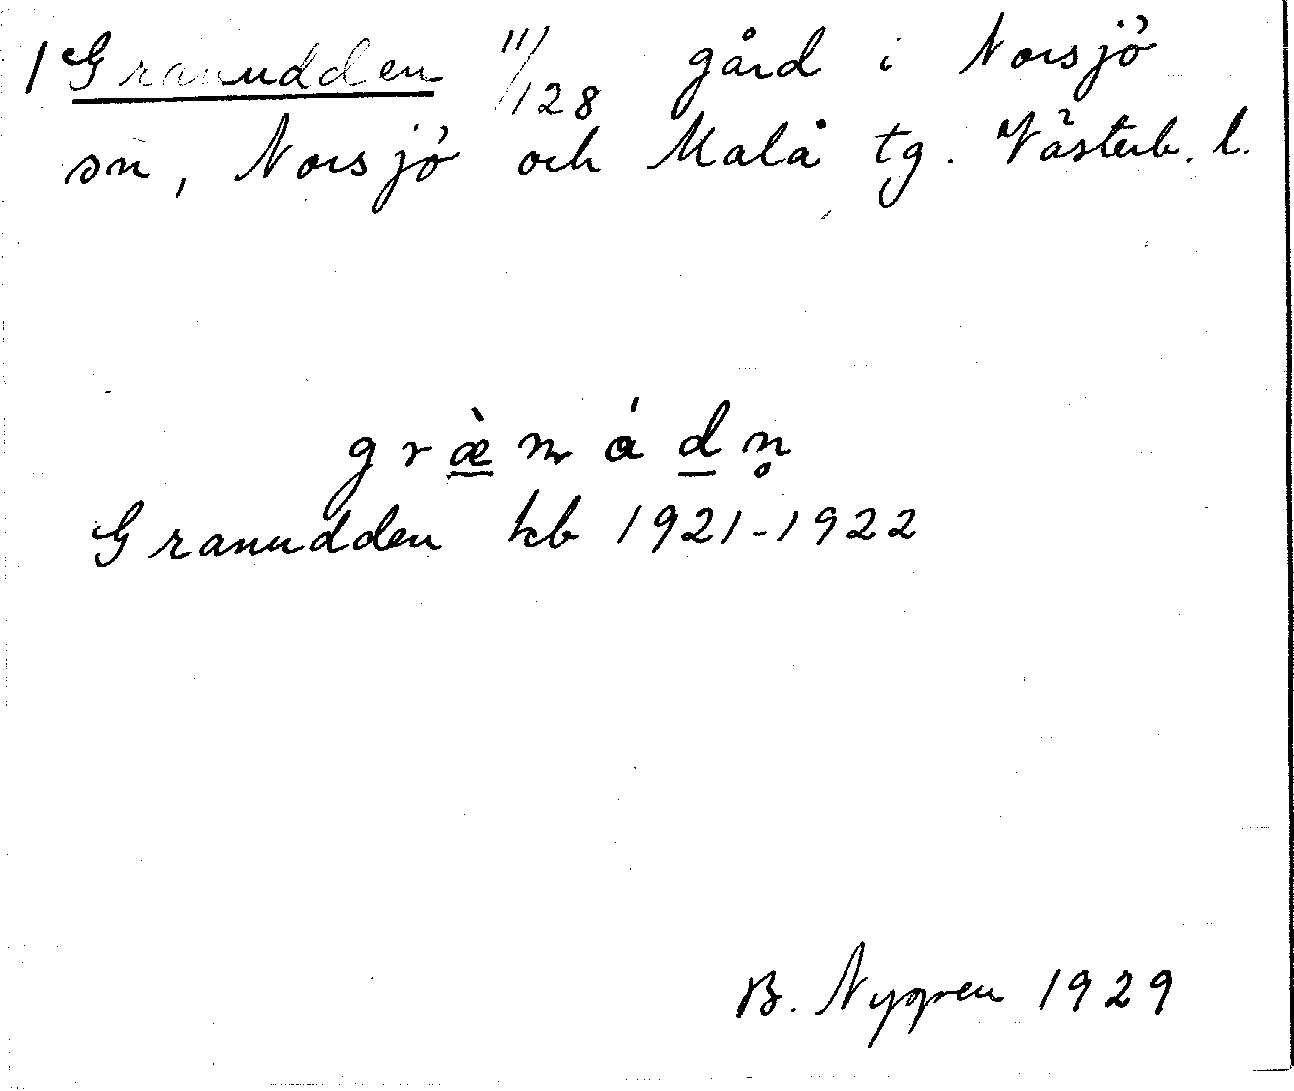 1 Granudden 11/128 gård i Norsjö
sn, Norsjö och Malå tg. Västerb. l.
græ̀nádn̥
Granudden kb 1921-1922
B. Nygren 1929